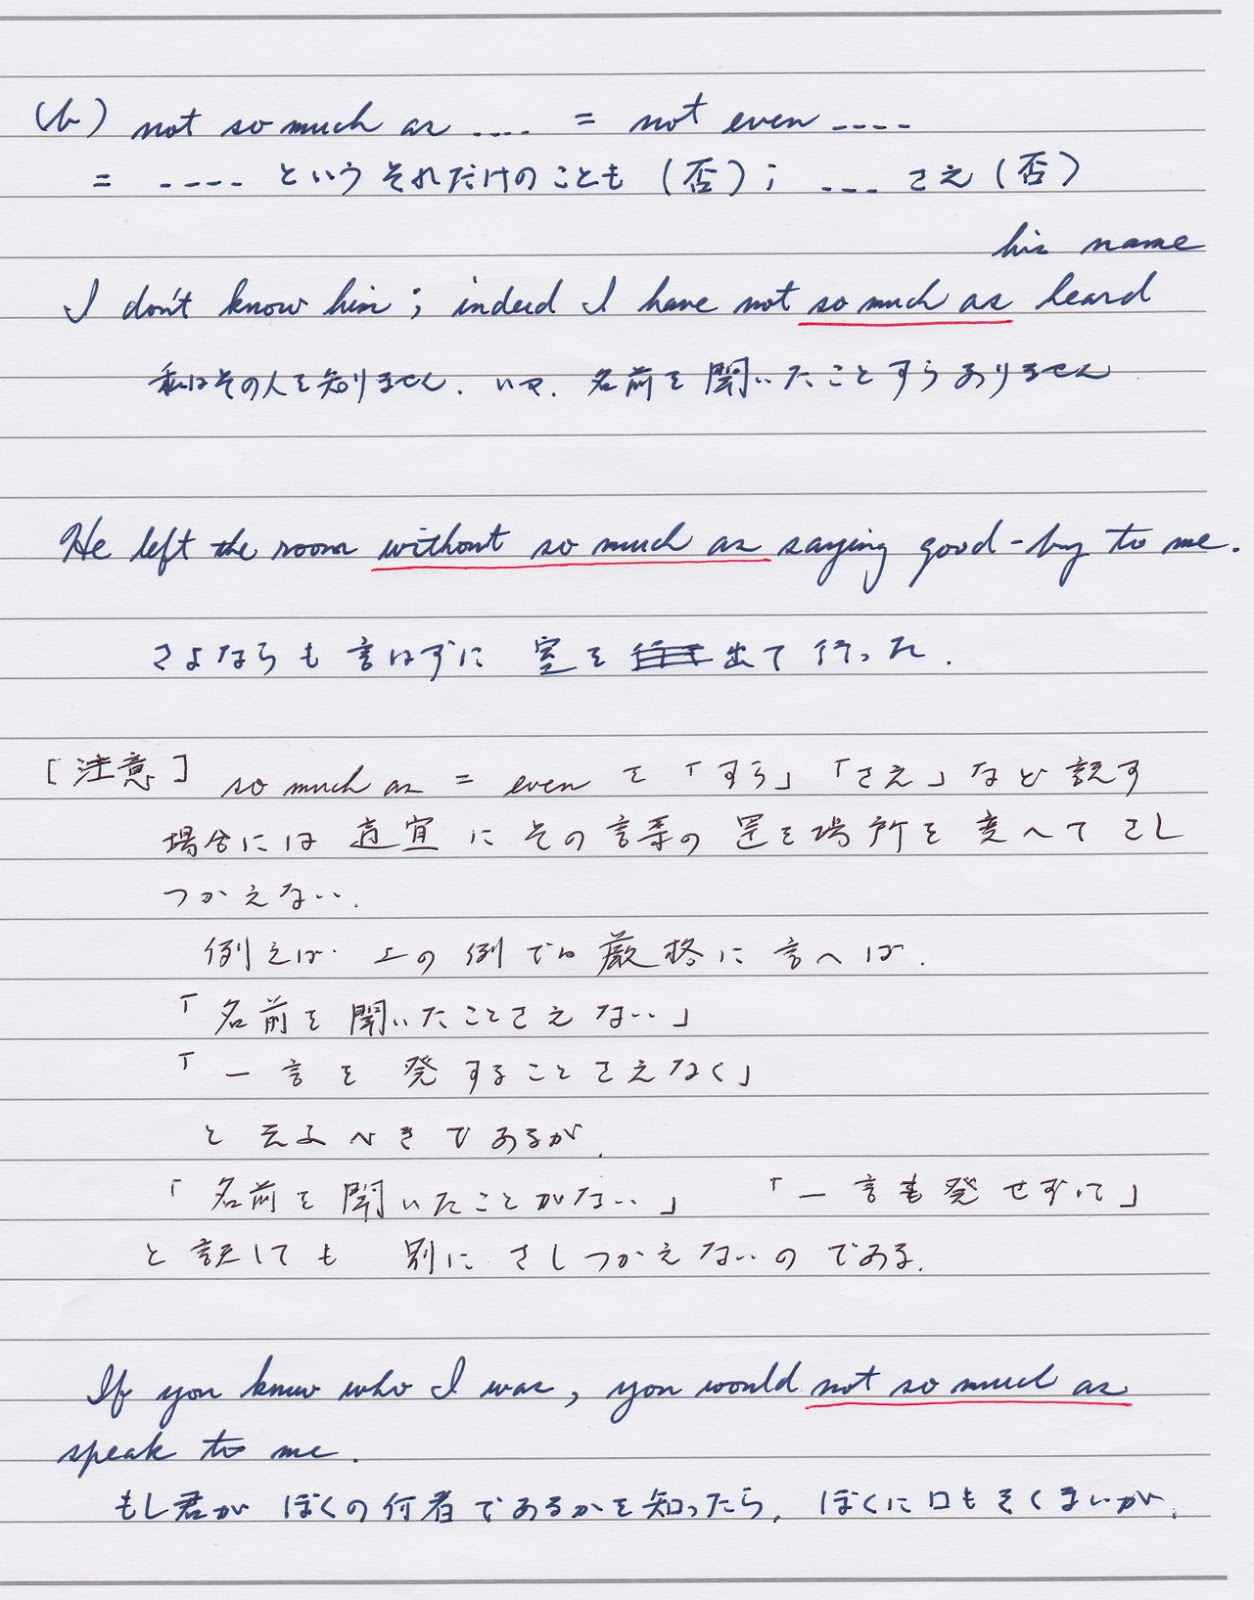 (b) not so much as .... = not even ----
= ---- というそれだけのことも (否) ; --- さえ (否)
his name
I don't know him ; indeed I have not so much as heard
私はその人を知りません. いや. 名前を聞いたことすらありません
He left the room without so much as saying good-by to me.
さよならも言はずに 室を 出て行った.
[注意] so much as = even を「すら」「さえ」など訳す
場合には 適宜にその言葉の置き場所を変へてさし
つかえない.
例えば 上の例でも厳格に言へば.
「名前を聞いたことさえない」
「一言を発することさえなく」
と云ふべきであるが.
「名前を聞いたことがない」 「一言も発せずして」
と訳しても 別にさしつかえないのである.
If you knew who I was, you would not so much as
speak to me.
もし君が ぼくの何者であるかを知ったら, ぼくに口もきくまいが.